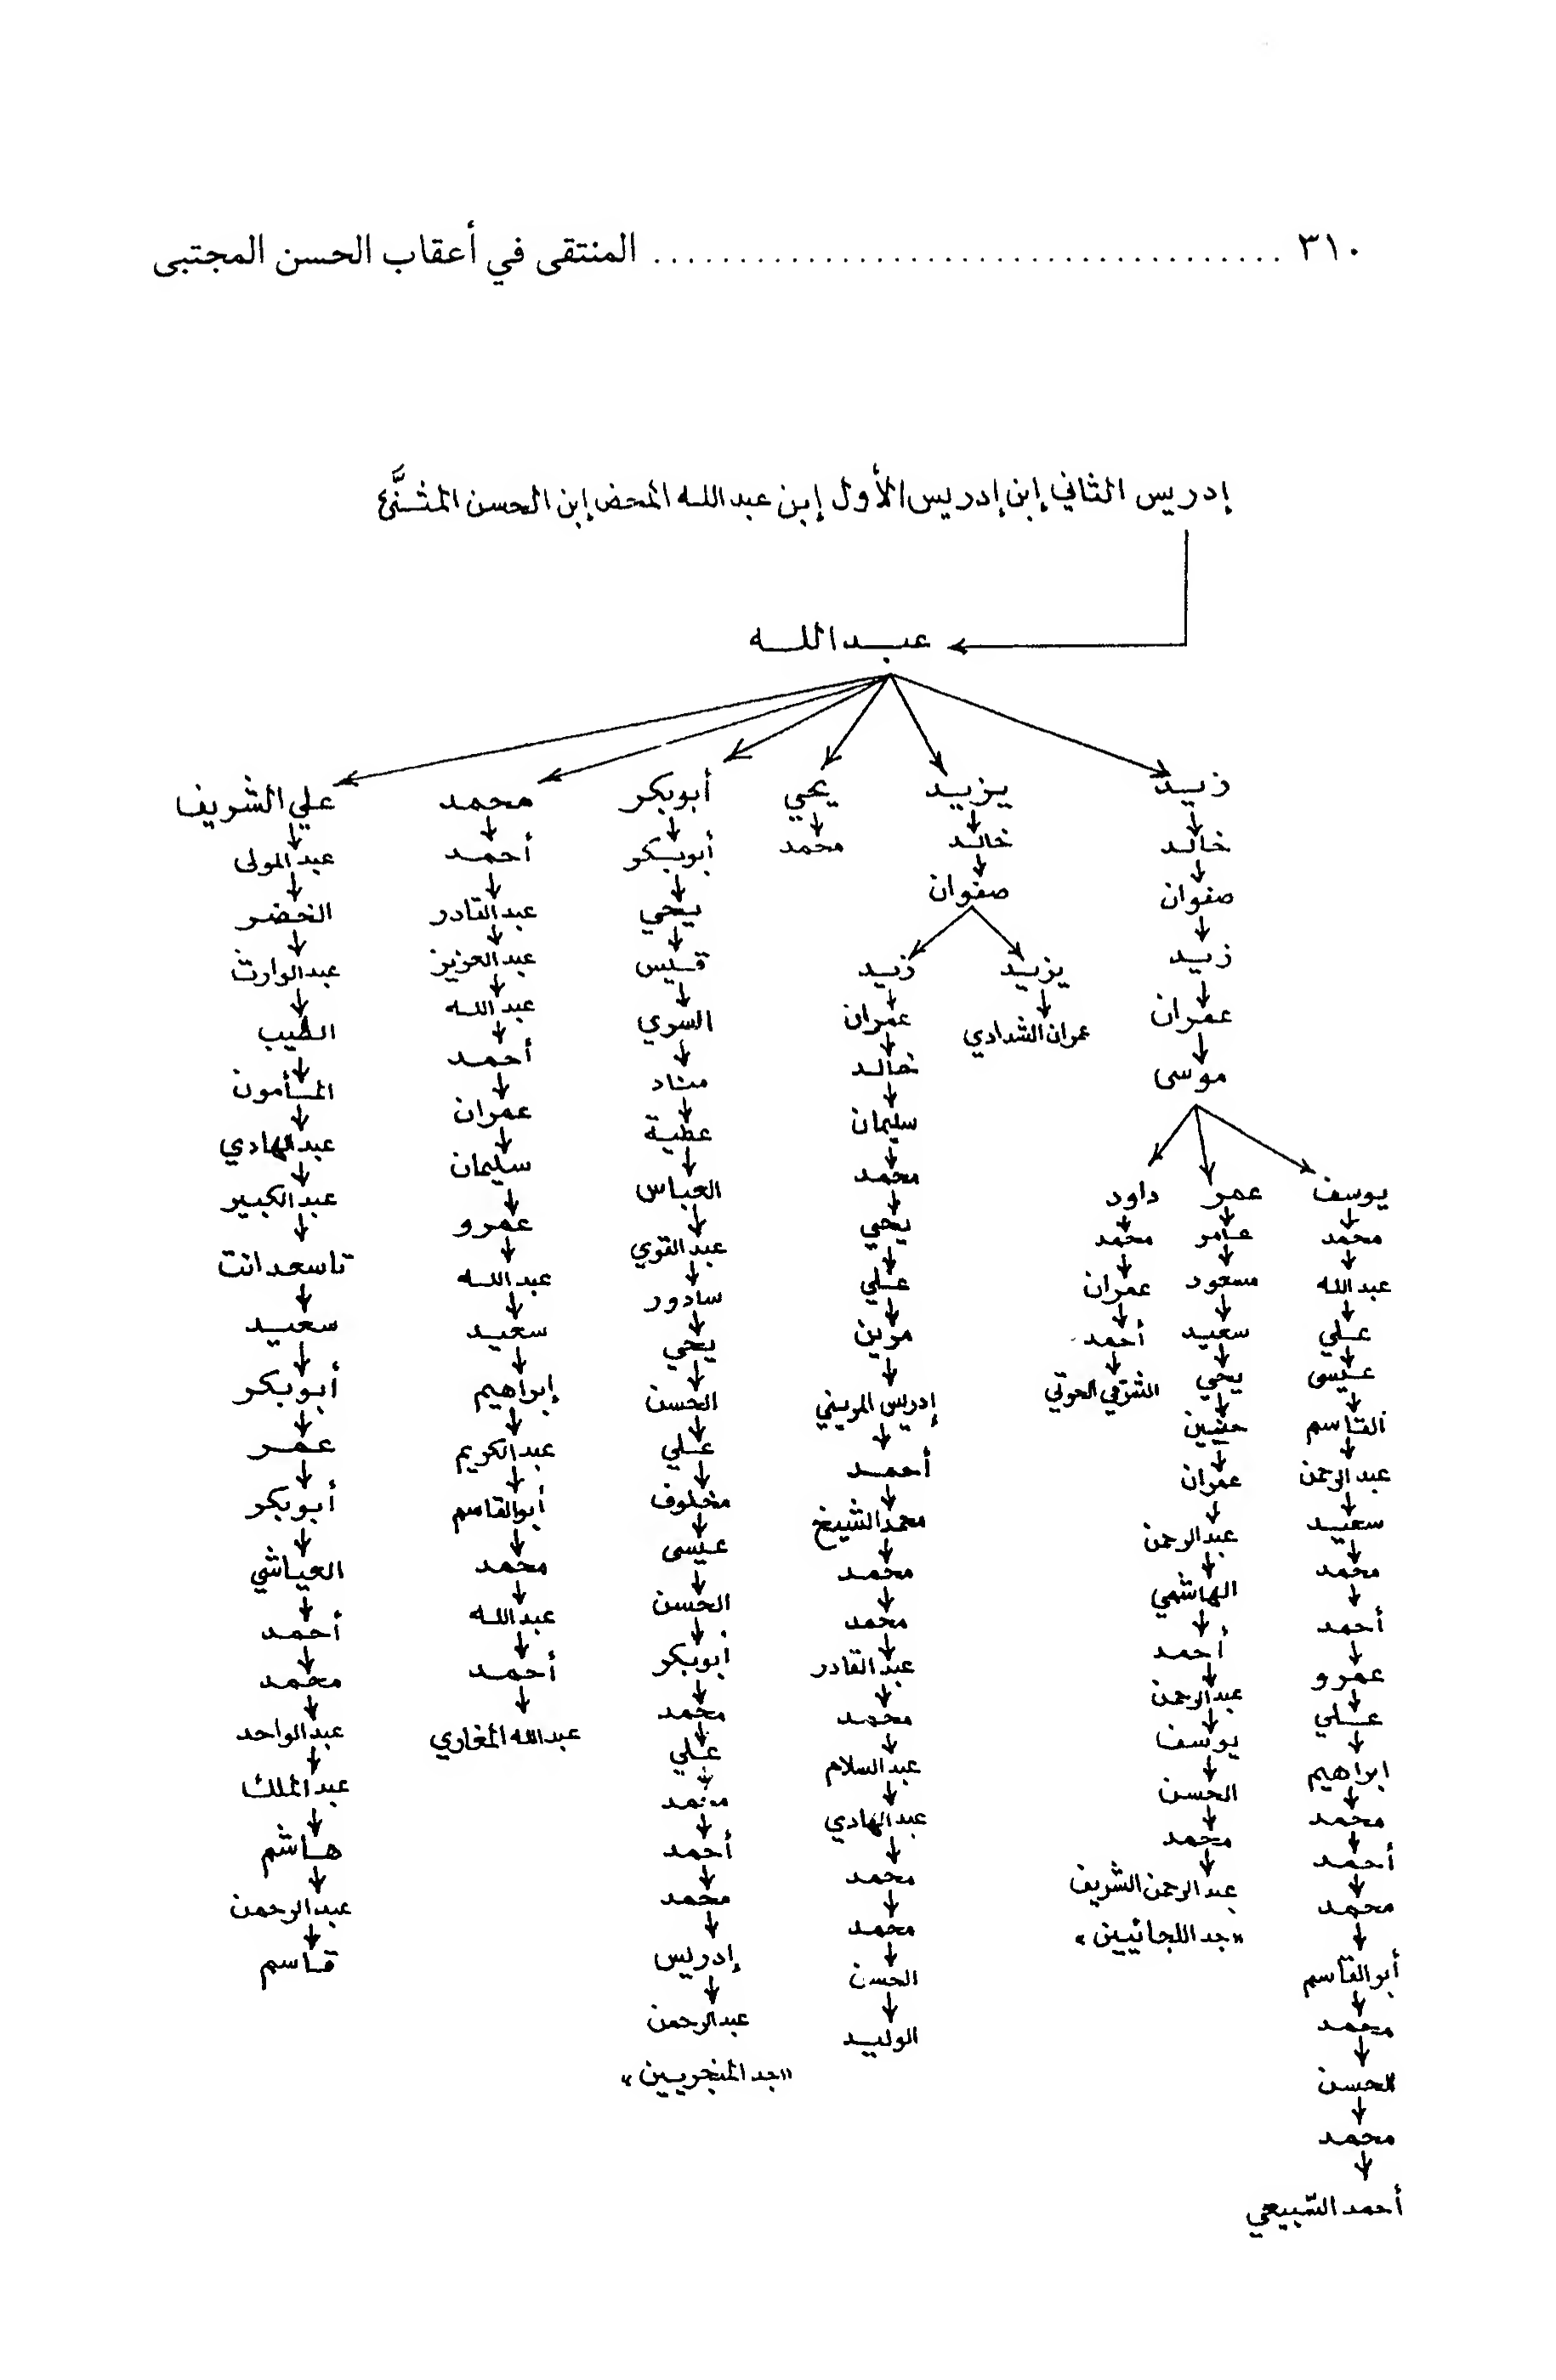 ٣١٠ ..................................... المنتقى في أعقاب الحسن المجتبى
إدريس الثاني إبن إدريس الأول إبن عبدالله المحض إبن الحسن المثنَّى
عبدالله
زيد
خالد
صفوان
زيد
عمران
موسى
يوسف
محمد
عبدالله
علي
عيسى
القاسم
عبدالرحمن
سعيد
محمد
أحمد
عمرو
علي
ابراهيم
محمد
أحمد
محمد
أبوالقاسم
محمد
الحسن
محمد
أحمد السّبيعي
عمر
عامر
مسعود
سعيد
يحي
حنين
عمران
عبدالرحمن
الهاشمي
أحمد
عبدالرحمن
يوسف
الحسن
محمد
عبدالرحمن الشريف
«جد اللجائيين»
داود
محمد
عمران
أحمد
الحوتي
يزيد
خالد
صفوان
يزيد
عمران الشدادي
زيد
عمران
خالد
سليمان
محمد
يحي
علي
مرين
إدريس المريني
أحمد
محمد الشيخ
محمد
محمد
عبدالقادر
محمد
عبدالسلام
عبدالهادي
محمد
محمد
الحسن
الوليد
يحي
محمد
أبوبكر
أبوبكر
يحي
قيس
السري
مناد
عطية
العباس
عبدالقوي
سادور
يحي
الحسن
علي
مخلوف
عيسى
الحسن
أبوبكر
محمد
علي
محمد
أحمد
محمد
إدريس
عبدالرحمن
«جد المنجريين»
محمد
أحمد
عبدالقادر
عبدالعزيز
عبدالله
أحمد
عمران
سليمان
عمرو
عبدالله
سعيد
إبراهيم
عبدالكريم
أبوالقاسم
محمد
عبدالله
أحمد
عبدالله المغاري
علي الشريف
عبدالمولى
الخضر
عبدالوارث
الطيب
المأمون
عبدالهادي
عبدالكبير
تاسعدانت
سعيد
أبوبكر
عمر
أبوبكر
العياشي
أحمد
محمد
عبدالواحد
عبدالملك
هاشم
عبدالرحمن
قاسم